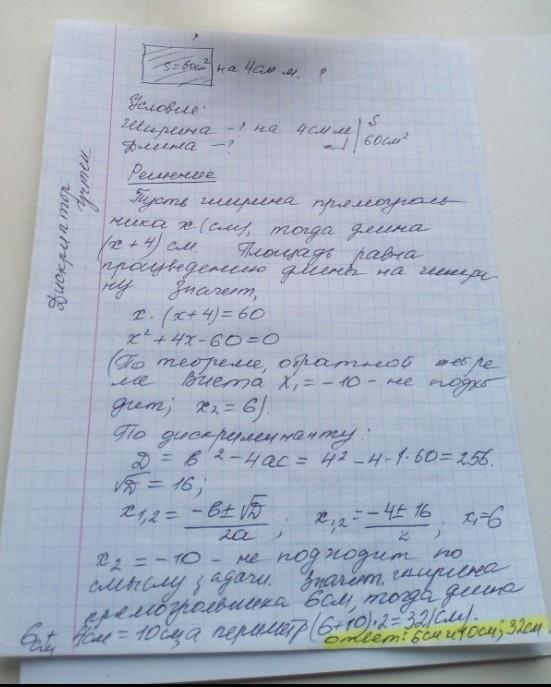 ?
S=60см² на 4см м. ?
Условие:
Ширина -? на 4см м | S
Длина -? | 60см²
Решение
Пусть ширина прямоуголь-
ника x (см), тогда длина
(x+4) см. Площадь равна
произведению длины на шири-
ну Значит,
x · (x+4)=60
x²+4x-60=0
(По теореме, обратной теоре
ме Виета x₁ = -10 - не подхо
дит; x₂ = 6).
По дискриминанту:
D = b² - 4ac = 4² - 4·1·60 = 256.
√D = 16;
x₁,₂ = (-b±√D)/2a ; x₁,₂ = (-4±16)/2 ; x₁=6
x₂ = -10 - не подходит по
смыслу задачи. Значит, ширина
прямоугольника 6см, тогда длина
6см + 4см = 10см, а периметр (6+10)·2=32(см).
Ответ: 6см и 10см; 32см
Дискриптор
учтен